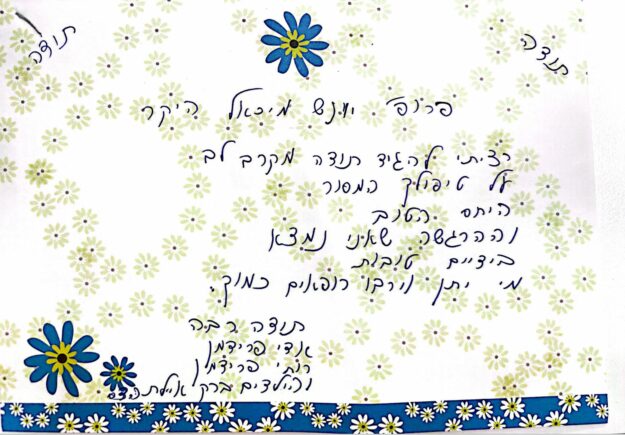 תודה
תודה
פרופ' יונש מיכאל היקר
רציתי להגיד תודה מקרב לב
על טיפולך המסור
היחס הטוב
וההרגשה שאיני נמצא
בידיים טובות
מי יתן וירבו רופאים כמוך.
תודה רבה
אדי פרידמן
רותי פרידמן
והילדים ברק אילת